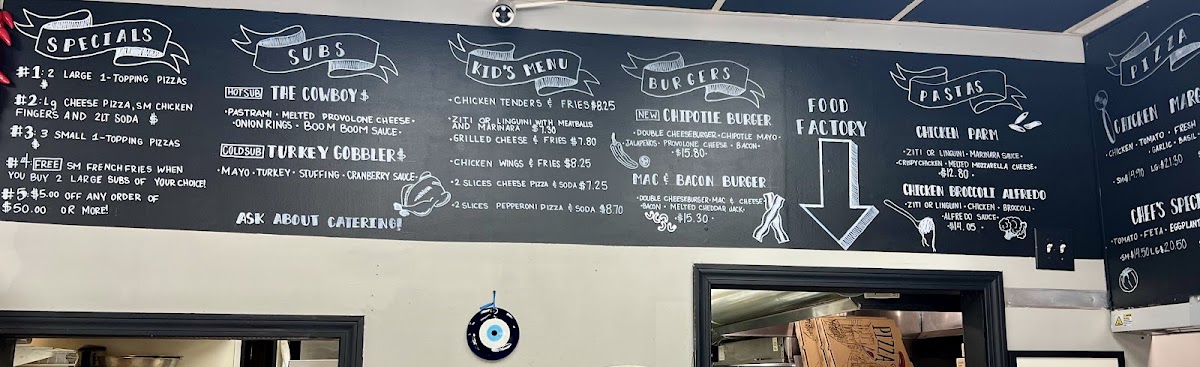 SPECIALS
#1: 2 LARGE 1-TOPPING PIZZAS
$
#2: Lg CHEESE PIZZA, SM CHICKEN
FINGERS AND 2LT SODA $
#3: 3 SMALL 1-TOPPING PIZZAS
$
#4 FREE SM FRENCH FRIES WHEN
YOU BUY 2 LARGE SUBS OF YOUR CHOICE!
#5 $5.00 OFF ANY ORDER OF
$50.00 OR MORE!
SUBS
HOT SUB THE COWBOY $
•PASTRAMI • MELTED PROVOLONE CHEESE•
•ONION RINGS • BOOM BOOM SAUCE•
COLD SUB TURKEY GOBBLER $
•MAYO • TURKEY • STUFFING • CRANBERRY SAUCE•
ASK ABOUT CATERING!
KID'S MENU
•CHICKEN TENDERS & FRIES $8.25
•ZITI OR LINGUINI WITH MEATBALLS
AND MARINARA $7.30
•GRILLED CHEESE & FRIES $7.80
•CHICKEN WINGS & FRIES $8.25
•2 SLICES CHEESE PIZZA & SODA $7.25
•2 SLICES PEPPERONI PIZZA & SODA $8.70
BURGERS
NEW CHIPOTLE BURGER
•DOUBLE CHEESEBURGER • CHIPOTLE MAYO•
JALAPEÑOS • PROVOLONE CHEESE • BACON•
•$15.80•
MAC & BACON BURGER
•DOUBLE CHEESEBURGER • MAC & CHEESE
•BACON • MELTED CHEDDAR JACK•
•$15.30•
FOOD
FACTORY
PASTAS
CHICKEN PARM
•ZITI OR LINGUINI • MARINARA SAUCE•
•CRISPY CHICKEN • MELTED MOZZARELLA CHEESE•
•$12.80•
CHICKEN BROCCOLI ALFREDO
•ZITI OR LINGUINI • CHICKEN • BROCOLI•
•ALFREDO SAUCE•
•$14.05•
PIZZA
CHICKEN MARG
•CHICKEN • TOMATO • FRESH
GARLIC • BASIL
•SM $14.90 LG $21.30
CHEF'S SPECI
•TOMATO • FETA • EGGPLANT
•SM $14.50 LG $20.50
PIZZA